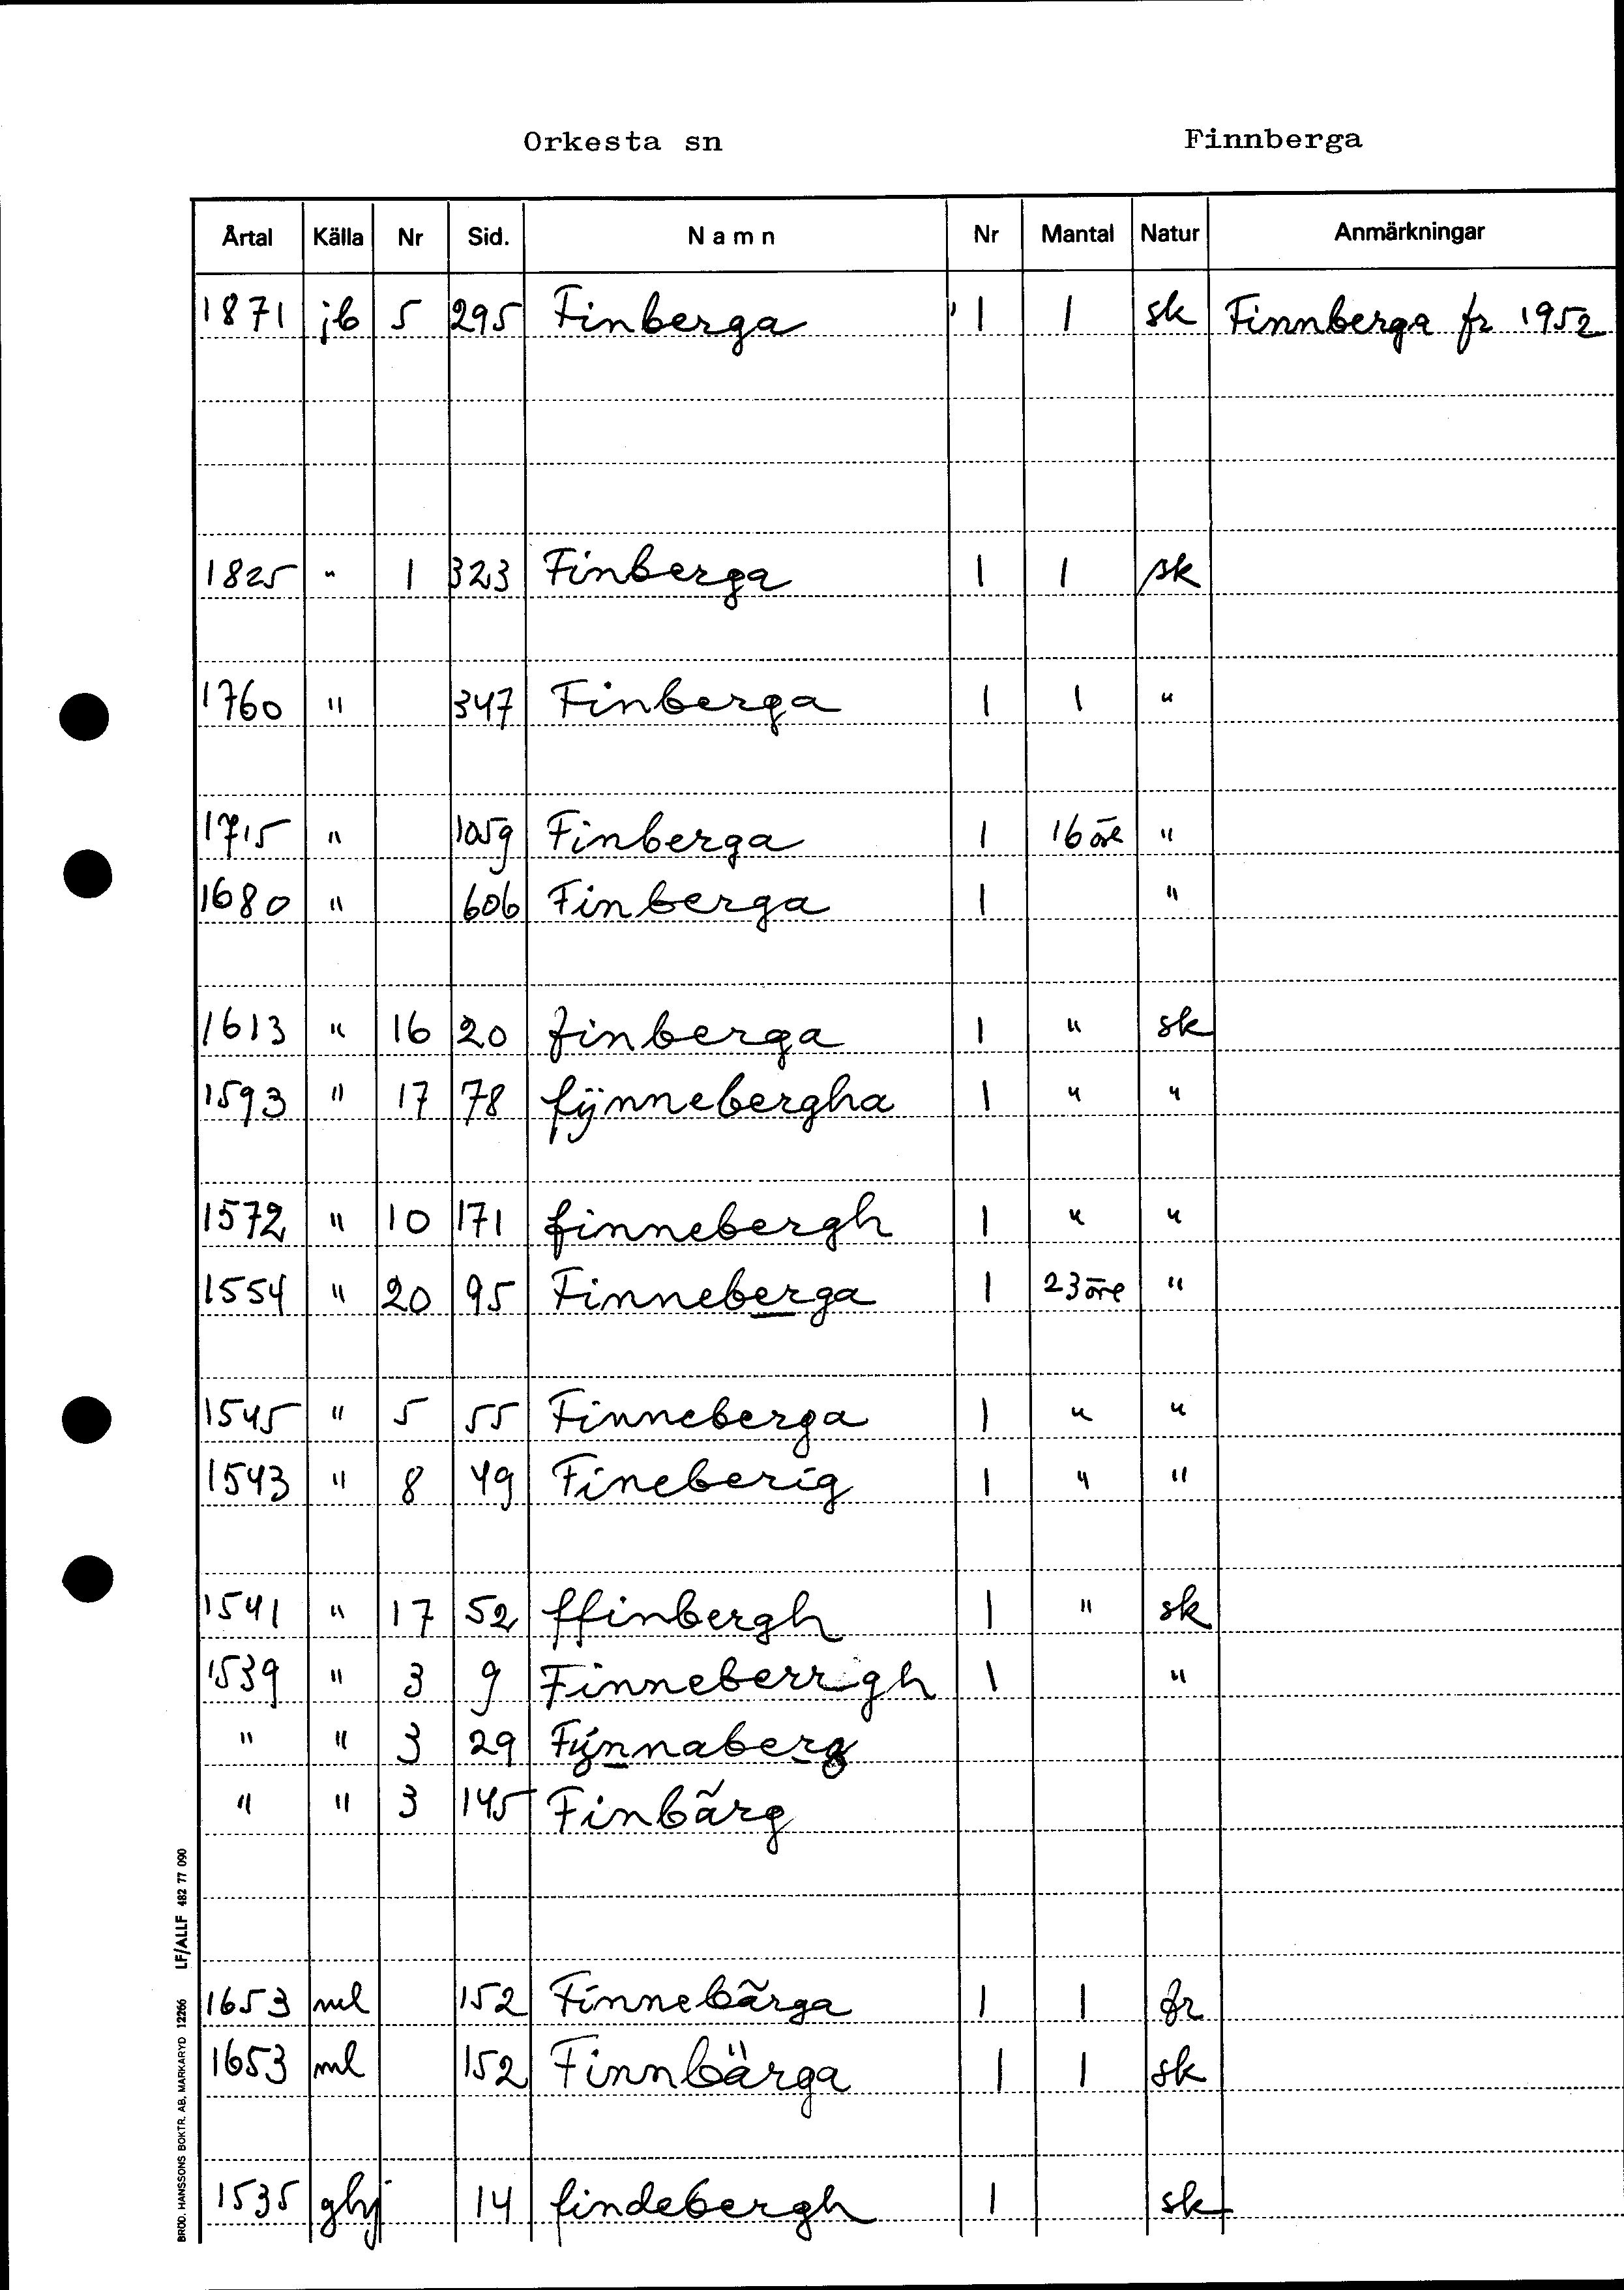 Orkesta sn Finnberga
Årtal Källa Nr Sid. Namn Nr Mantal Natur Anmärkningar
1871 jb 5 295 Finberga 1 1 sk Finnberga fr 1952
1825 " 1 323 Finberga 1 1 sk
1760 " 347 Finberga 1 1 "
1715 " 1059 Finberga 1 16 öre "
1680 " 606 Finberga 1 "
1613 " 16 20 finberga 1 " sk
1593 " 17 78 fÿnnebergha 1 " "
1572 " 10 171 finnebergh 1 " "
1554 " 20 95 Finneberga 1 23 öre "
1545 " 5 55 Finneberga 1 " "
1543 " 8 49 Fineberig 1 " "
1541 " 17 52 ffinbergh 1 " sk
1539 " 3 9 Finneberrgh 1 "
" " 3 29 Fýnnaberg
" " 3 145 Finbãrg
1653 ml 152 Finnebãrga 1 1 fr
1653 ml 152 Finnbärga 1 1 sk
1535 ghj 14 findebergh 1 sk
BROD. HANSSONS BOKTR. AB, MARKARYD 12266 LF/ALLF 482 77 090